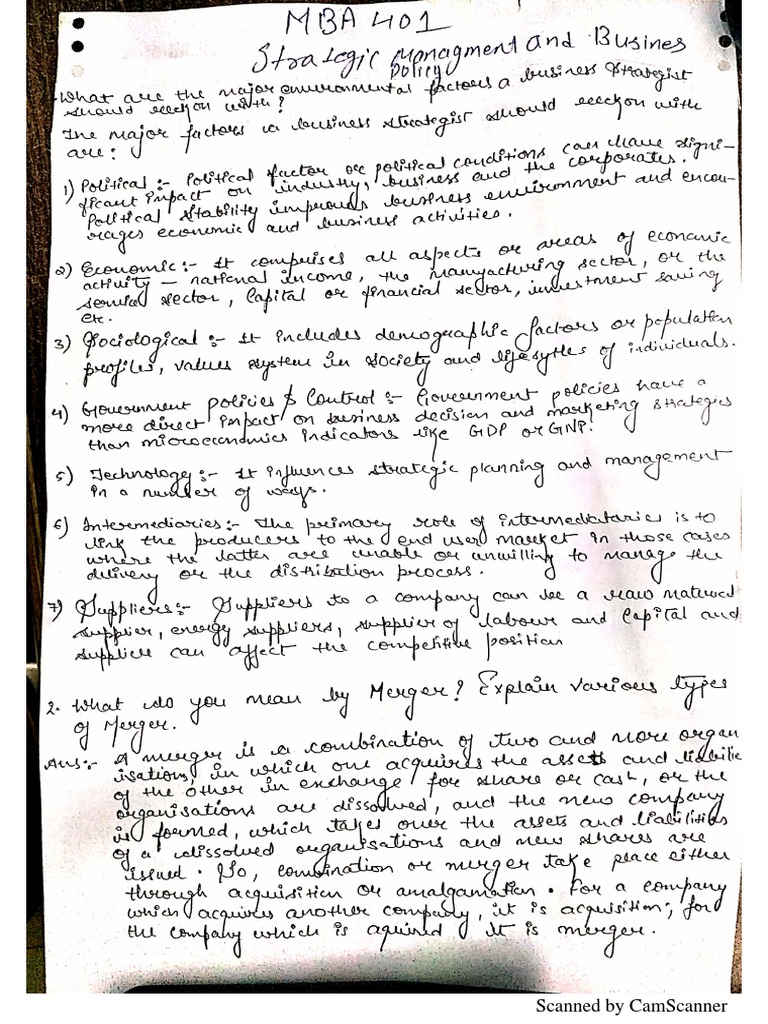 MBA 401
Strategic Managment and Busines
policy
What are the major environmental factors a business strategist
should reckon with?
The major factors a business strategist should reckon with
are:
1) Political :- Political factor or political conditions can have signi-
ficant impact on industry, business and the corporates.
Political stability improves business environment and encou-
rages economic and business activities.
2) Economic :- It comprises all aspects or areas of economic
activity – national income, the manufacturing sector, or the
service sector, Capital or financial sector, investment saving
etc.
3) Sociological :- It includes demographic factors or population
profiles, values system in society and lifesytles of individuals.
4) Government policies & Control :- Government policies have a
more direct impact on business decision and marketing strategies
than microeconomics indicators like GDP or GNP.
5) Technology :- It influences strategic planning and management
in a number of ways.
6) Intermediaries :- The primary role of intermediataries is to
link the producers to the end user market in those cases
where the latter are unable or unwilling to manage the
delivery or the distribution process.
7) Suppliers :- Suppliers to a company can be a raw material
supplier, energy suppliers, supplier of labour and Capital and
supplier can affect the competitive position
2. What do you mean by Merger? Explain various types
of Merger.
Ans :- A merger is a combination of two and more organ
isations, in which one acquires the assets and liabilitie
of the other in exchange for share or cash, or the
organisations are dissolved, and the new company
is formed, which takes over the assets and liabilities
of a dissolved organisations and new shares are
issued. So, combination or merger take place either
through acquisition or amalgamation. For a company
which acquires another company, it is acquisition; for
the company which is aquired it is merger.
Scanned by CamScanner